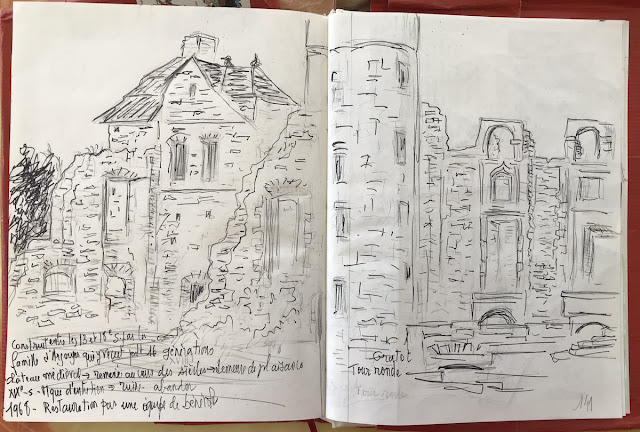 Construit entre les 13 et 18e S par la
famille d'Argouges qui y vécut pdt 16 générations
château médiéval → remanié au cours des siècles → demeure de plaisance
XIXe s - Mque d'entretien ⇒ ruine abandon
1968 - Restauration par une équipe de bénévoles
Gratot
Tour ronde
Tour ronde